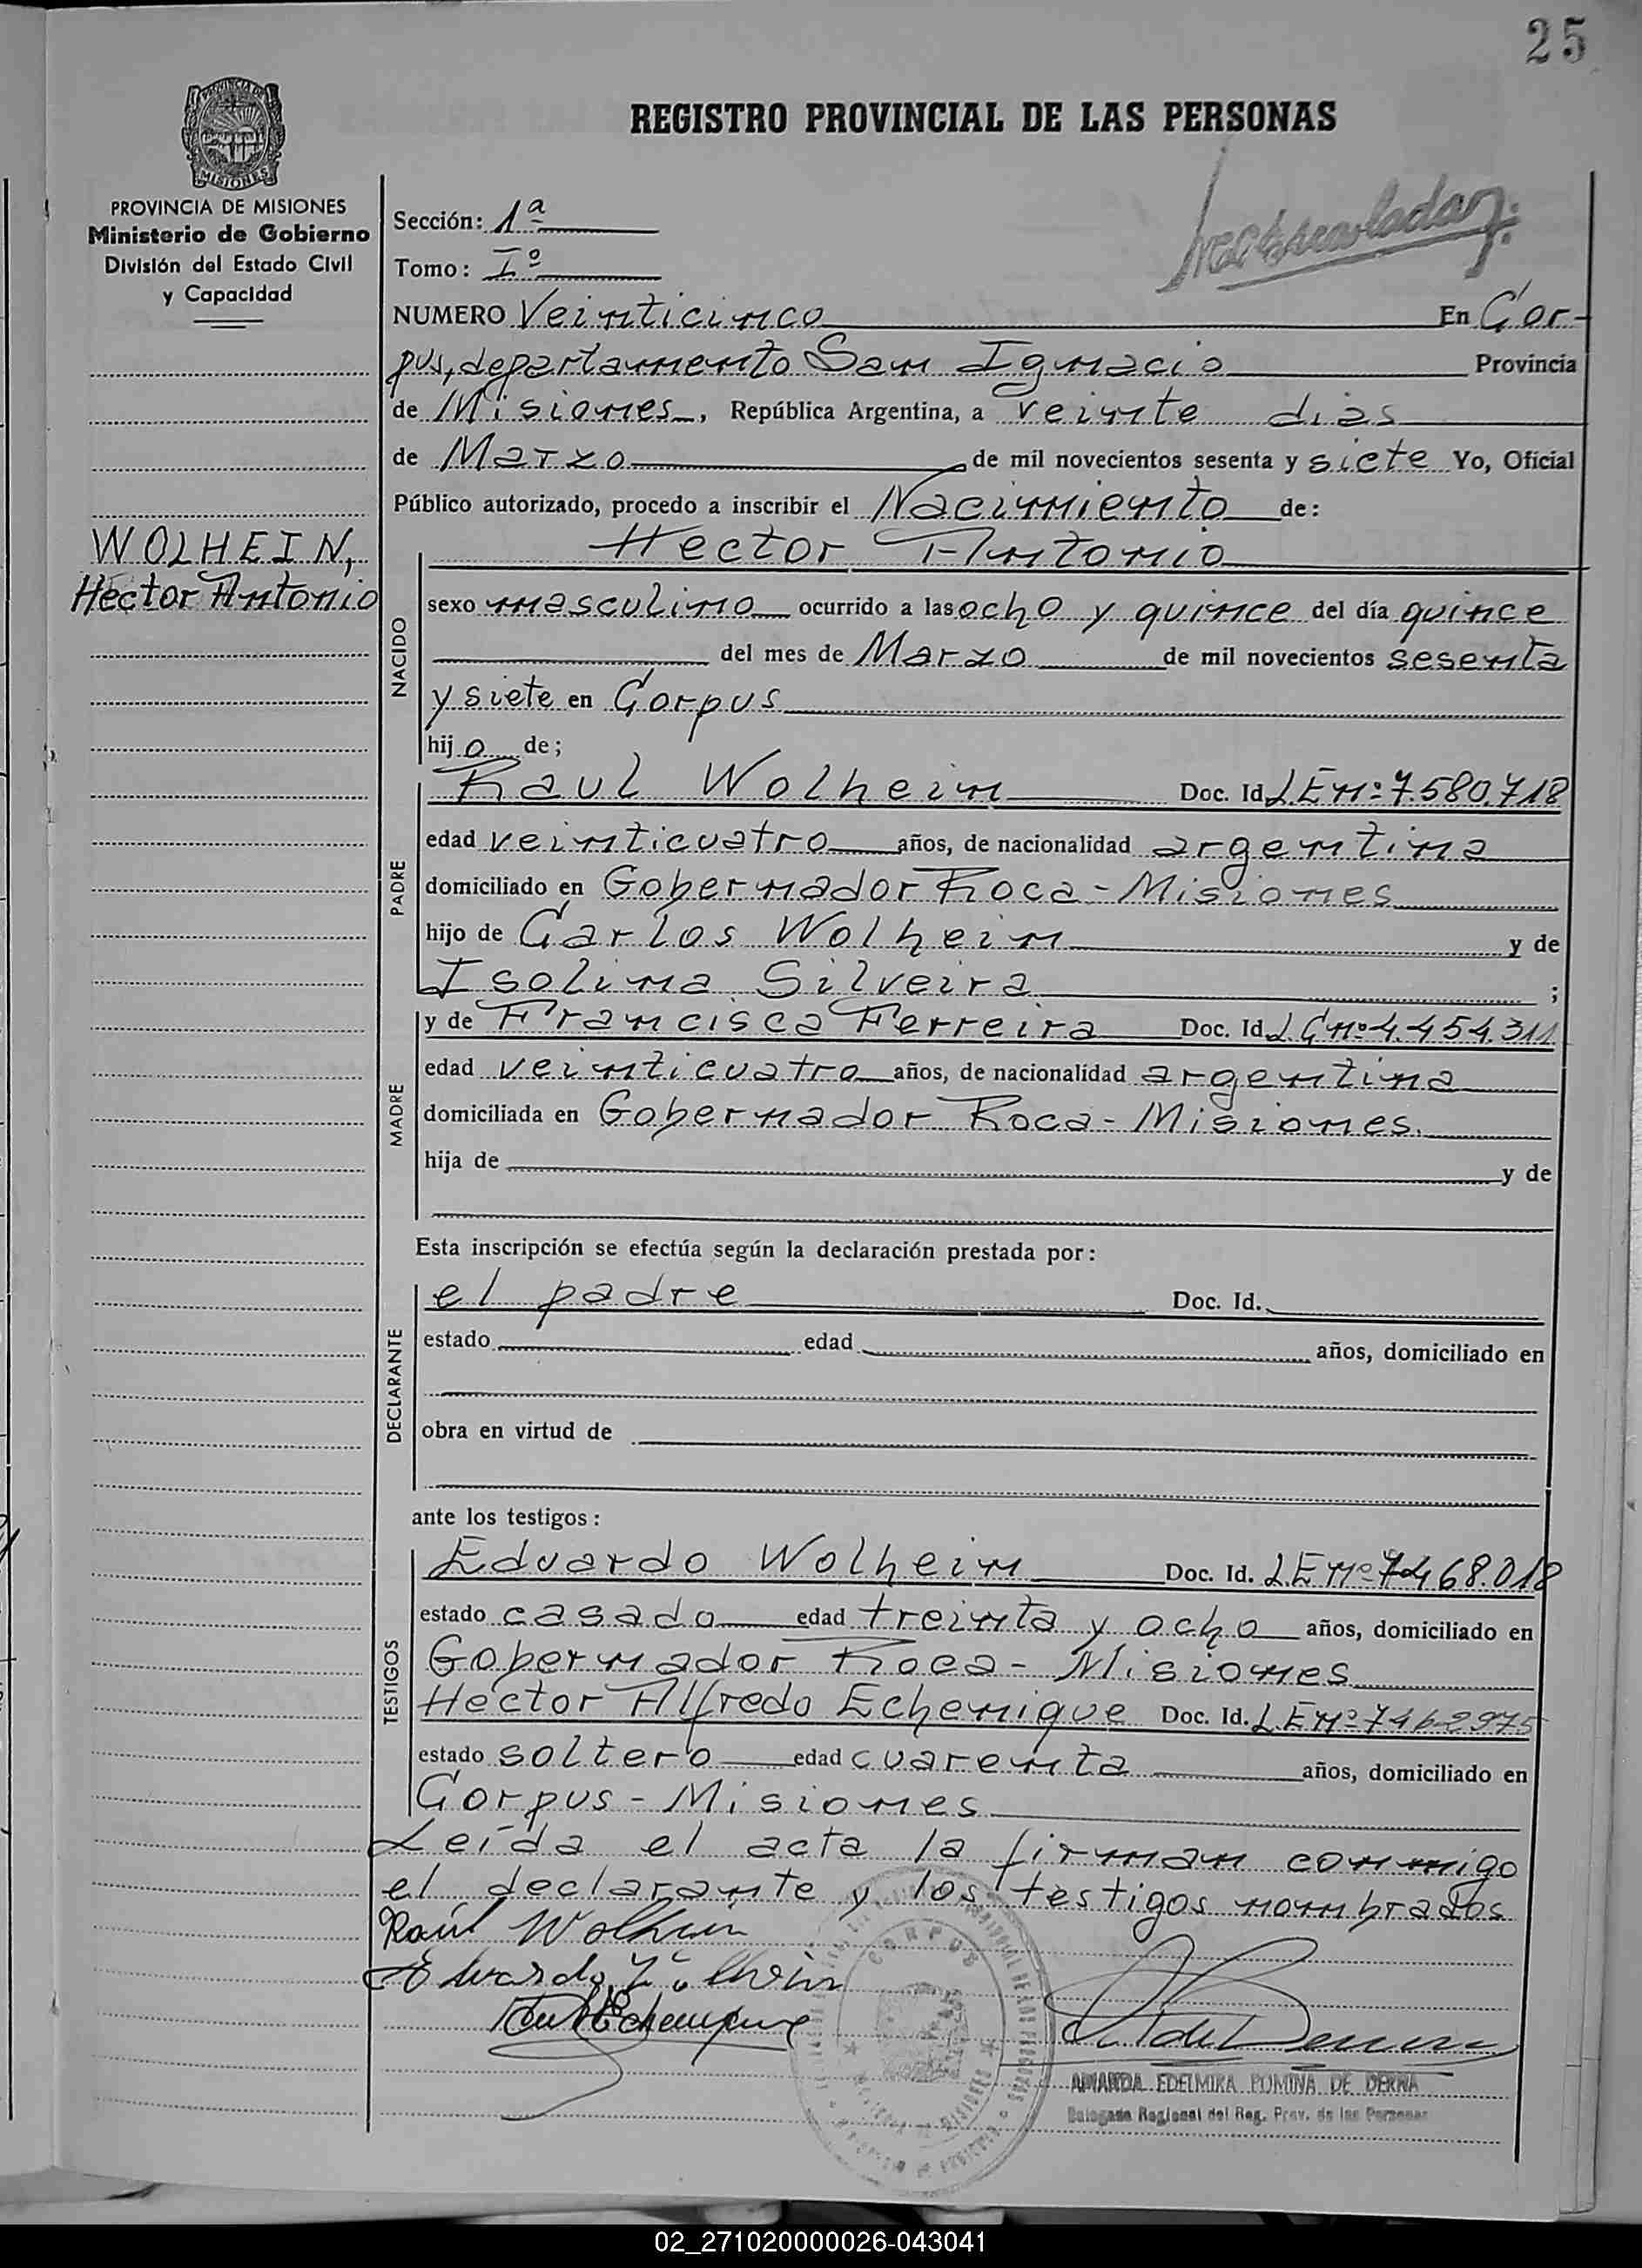 25
REGISTRO PROVINCIAL DE LAS PERSONAS
MISIONES
PROVINCIA DE MISIONES
Ministerio de Gobierno
División del Estado Civil
y Capacidad
WOLHEIN,
Hector Antonio
Sección: 1ª
Tomo: Iº
NUMERO Veinticinco En Cor-
pus, departamento San Ignacio Provincia
de Misiones, República Argentina, a veinte dias
de Marzo de mil novecientos sesenta y siete Yo, Oficial
Público autorizado, procedo a inscribir el Nacimiento de:
Hector Antonio
NACIDO
sexo masculino ocurrido a las ocho y quince del día quince
del mes de Marzo de mil novecientos sesenta
y siete en Corpus
hijo de;
PADRE
Raul Wolhein Doc. Id L.E nº 7.580.718
edad veinticuatro años, de nacionalidad argentina
domiciliado en Gobernador Roca - Misiones
hijo de Carlos Wolhein y de
Isolina Silveira ;
MADRE
y de Francisca Ferreira Doc. Id L.C nº 4.454.311
edad veinticuatro años, de nacionalidad argentina
domiciliada en Gobernador Roca - Misiones.
hija de y de
Esta inscripción se efectúa según la declaración prestada por:
DECLARANTE
el padre Doc. Id.
estado edad años, domiciliado en
obra en virtud de
ante los testigos:
TESTIGOS
Eduardo Wolhein Doc. Id. L.E nº 7.468.018
estado casado edad treinta y ocho años, domiciliado en
Gobernador Roca - Misiones
Hector Alfredo Echenique Doc. Id. L.E nº 7462975
estado soltero edad cuarenta años, domiciliado en
Corpus - Misiones
Leída el acta la firman conmigo
el declarante y los testigos nombrados
Raúl Wolhein
Eduardo Wolhein
CORPUS
AMANDA EDELMIRA POMINA DE DERNA
Delegada Regional del Reg. Prov. de las Personas
02_271020000026-043041